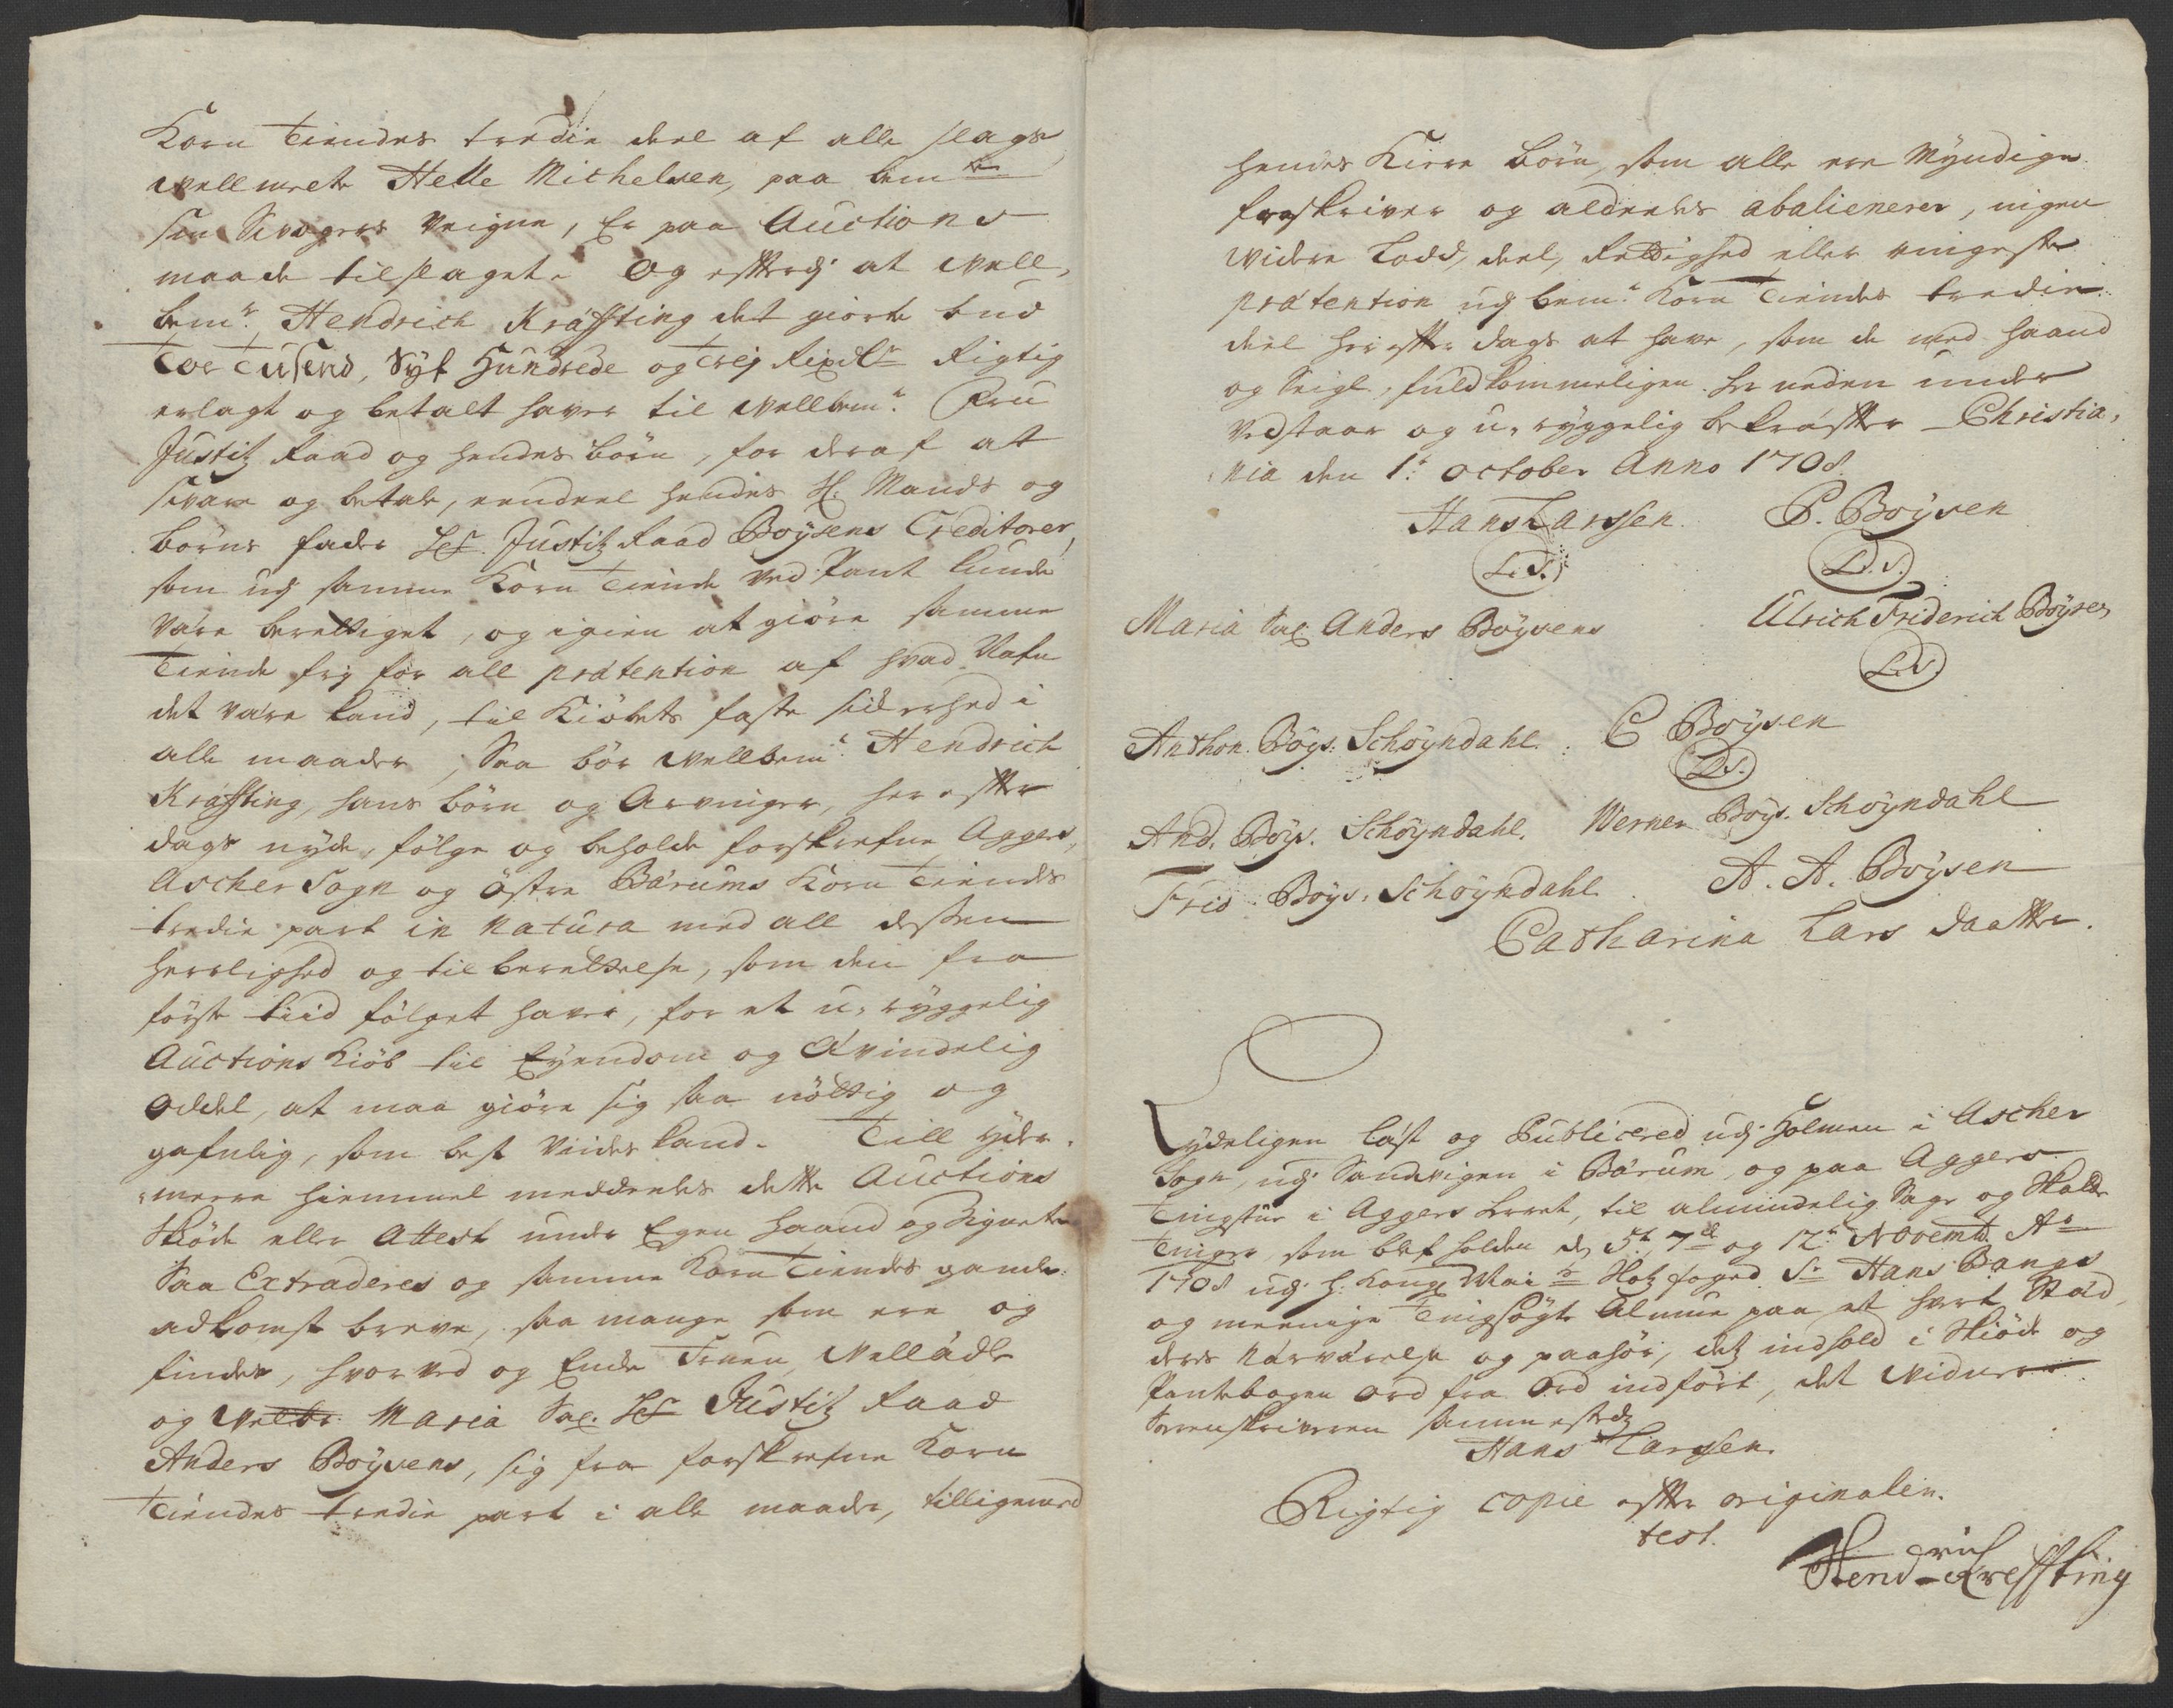 Korn Tiendes tredie deel af alle slags
Velmeente Helle Michelsen, paa bem.te
sin Svogers Veigne, Er paa Auctions
maade tilslaget. Og efterdj at Vell,
bem.te Hendrich Kräffting det giorte bud
Toe Tusend, Syf Hundrede og Trej Rixdlr Rigtig
erlagt og betalt haver til Vellbem.te Fru
Justitz Raad og hendes börn, for deraf at
svare og betale, eendeel hendes Sl. Mands og
börns fader Sl. Justitz Raad Boÿsens Creditorer,
som udj samme Korn Tiende ved Pant kunde
väre berettiget, og igien at giöre samme
Tiende frj for all prätention af hvad Nafn
det väre kand, til Kiöbets faste sickerhed i
alle maader, Saa bör Vellbem.te Hendrich
Kräffting, hans börn og Arvinger, her efter
dags nyde, fölge og beholde forskrefne Aggers,
Ascher Sogn og Östre Bärums Korn Tiendes
tredie part in natura med all dessen
herlighed og tilberettelse, som den fra
förste tiid fölget haver, for et u-ryggelig
Auctions Kiöb til Eÿendom og Ævindelig
Oddel, at maa giöre sig saa nöttig og
gafnlig, som best viides kand. Till ydere
meere hiemmel meddeeles dette Auctions
Skiöde eller Attest under Egen haand og Signete
Saa Extraderes og samme Korn Tiendes gamle
adkomst breve, saa mange som ere og
findes, hvorved og Ende Fruen, Vellädle
og Velbr. Maria Sal. Sl. Justitz Raad
Anders Boÿsens, sig fra forskrefne Korn
Tiendes tredie part i alle maader, tilligemed
hendes Kiere börn, som alle ere Myndige
fraskriver og aldeeles abalienerer, ingen
videre Lodd, deel, Rettighed eller ringeste
prätention udj bem.te Korn Tiendes tredie
deel her efter dags at have, som de med haand
og Seigl, fuldkommeligen her neden under
vedstaar og u-ryggelig bekräfter Christia,
nia den 1.te October Anno 1708.
Hans Larssen. P. Boÿsen
L.S. L.S.
Maria Sal. Anders Boÿsens Ulrich Friderich Boÿsen
L.S.
Anthon. Boÿs. Schöyndahl. C Boÿsen
L.S.
And. Boÿs. Schöyndahl. Werner Boÿs. Schöyndahl
Frid. Boÿs. Schöyndahl. A. A. Boÿsen
Catharina Lars daatter.
Lydeligen läst og Publicered udj Holmen i Ascher
Sogn, udj Sandvigen i Bärum, og paa Aggers
Tingstue i Aggers Herret, til almindelig Sage og Skatte
Tinger, som blef holden d. 5.te 7.de og 12.te Novemb. Ao
1708 udj H. Kongl. Mai.ts Fogd Sr. Hans Bangs
og meenige Tingsögte Almue paa et hvert Stæd,
deres närvärelse og paahör, dets indhold i Skiöde og
Pantebogen ord fra Ord indfört, det vidner
Sorenskriveren sammestedz
Hans Larssen.
Rigtig Copie efter originalen.
test.
Hendrich Kreffting